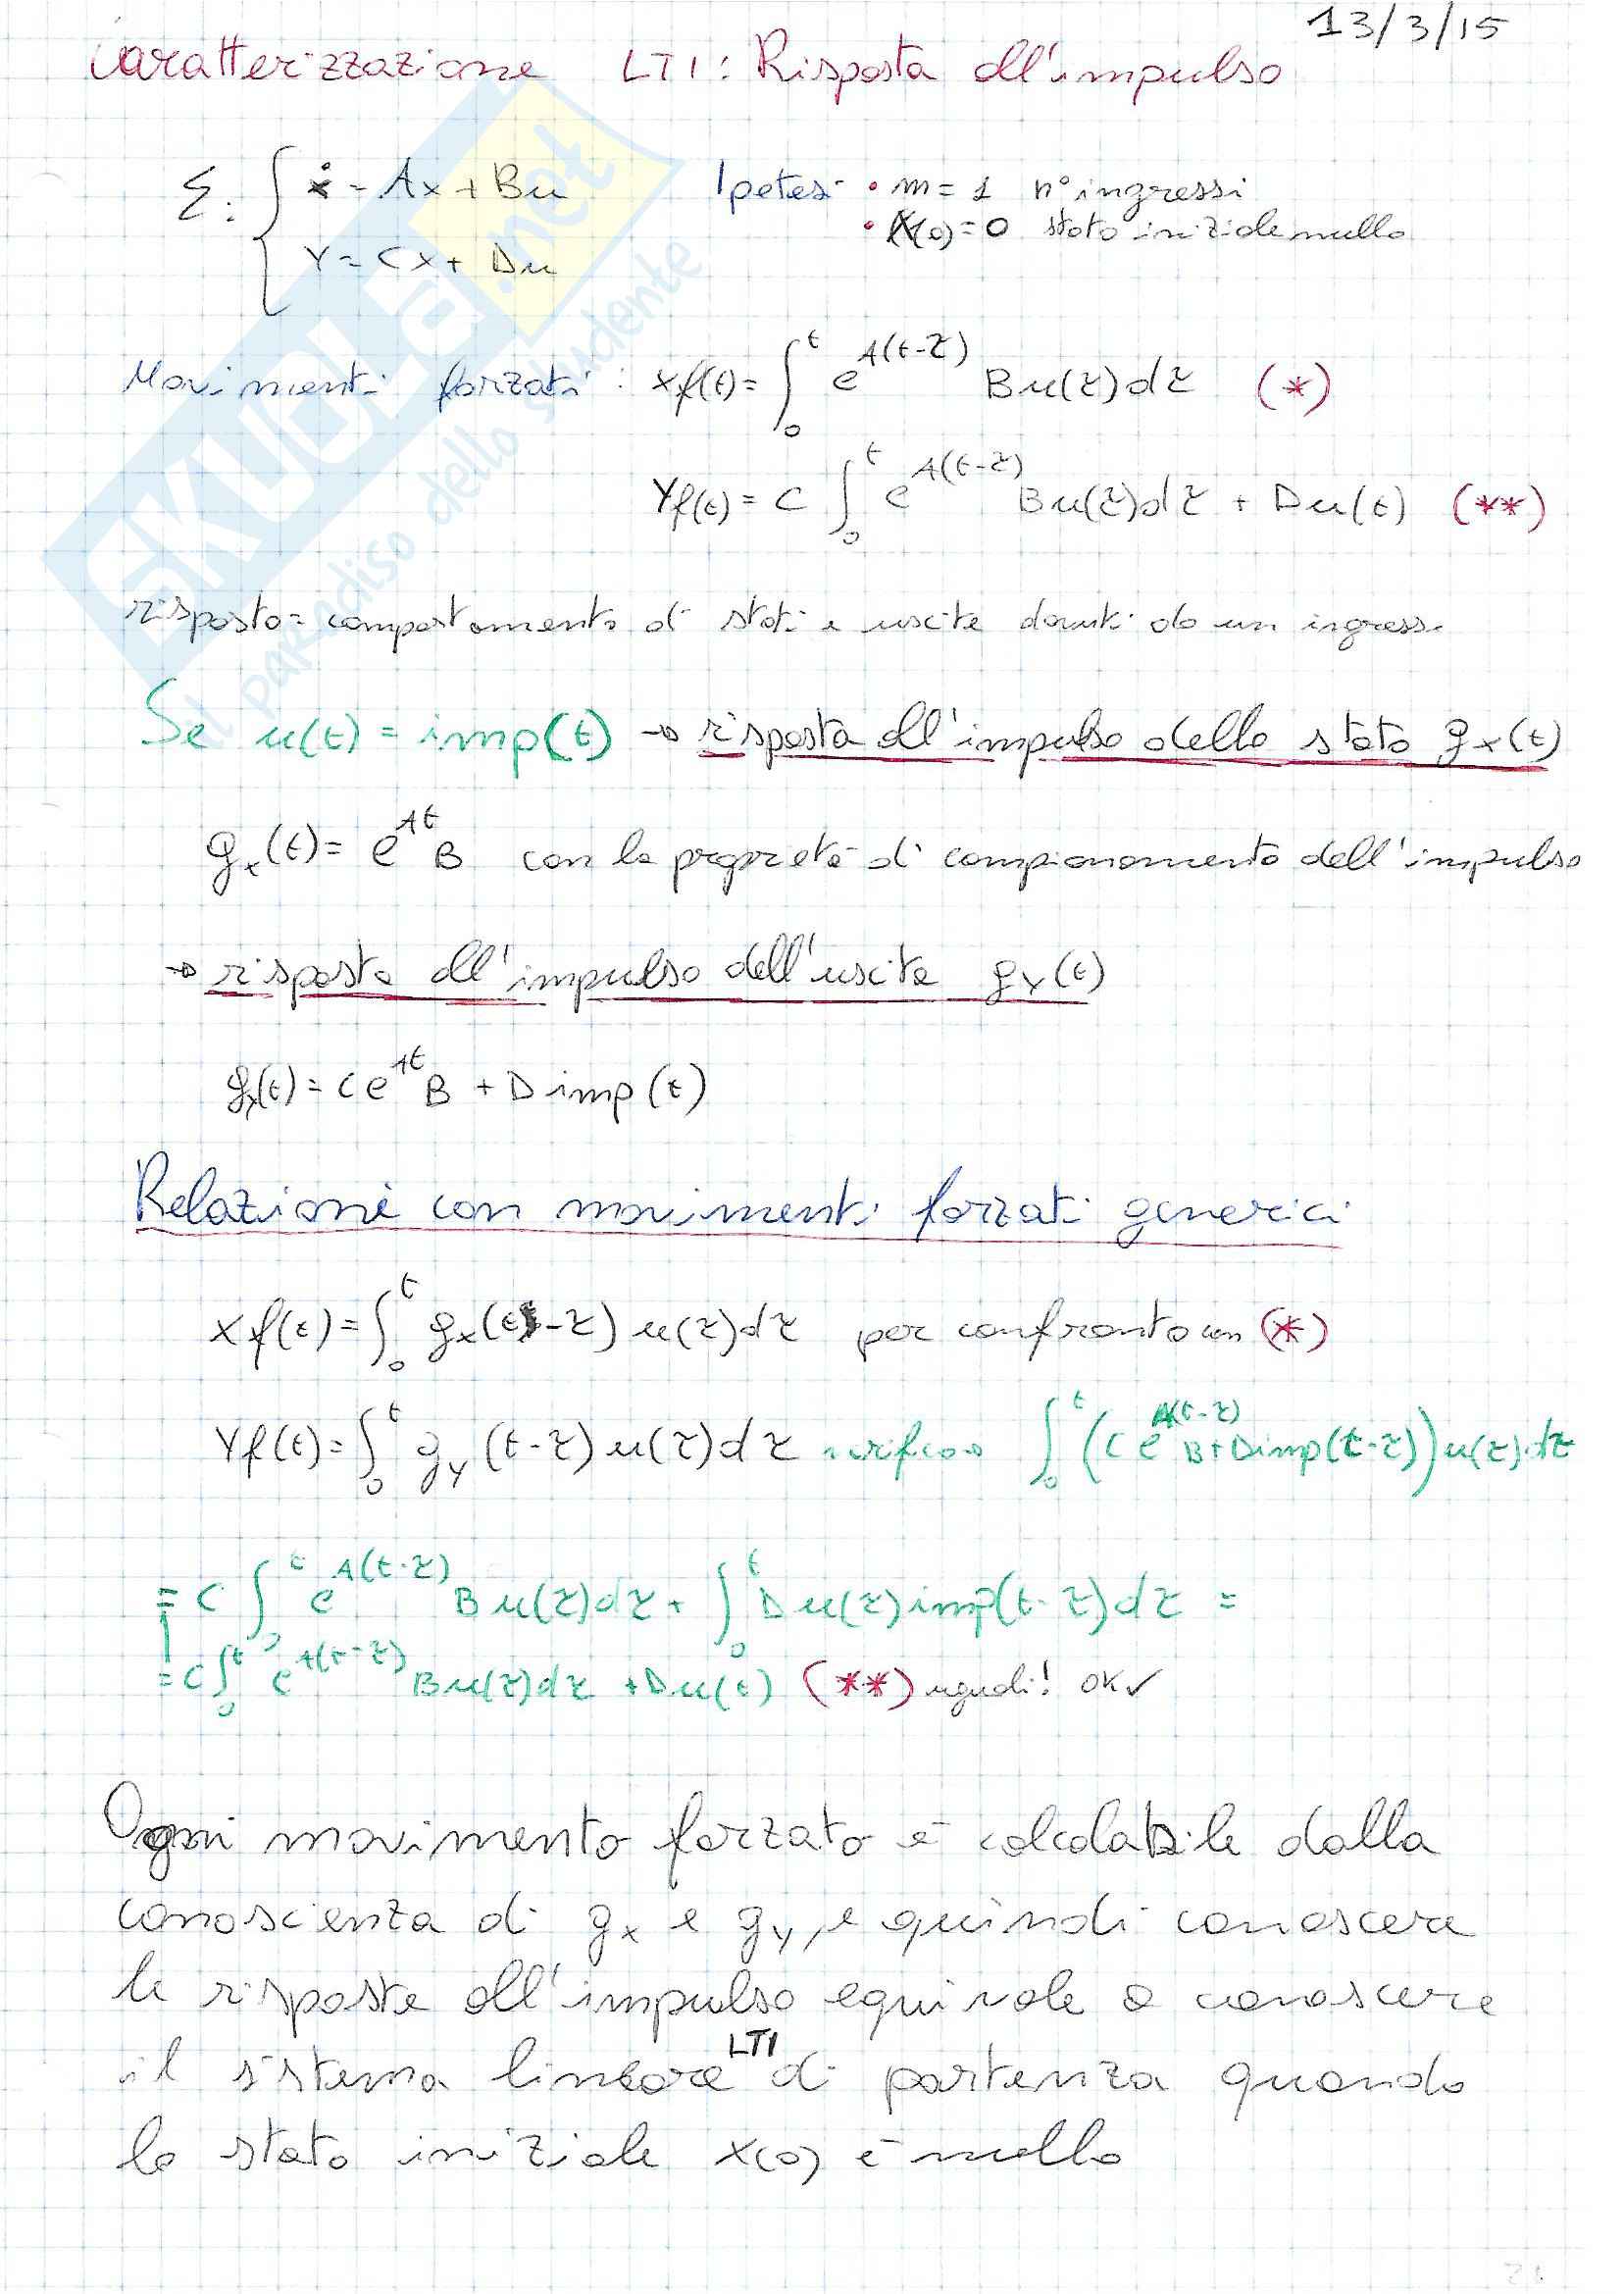 13/3/15
Caratterizzazione LTI: Risposta all'impulso
Σ: { ẋ = Ax + Bu
Y = Cx + Du
Ipotesi • m = 1 n° ingressi
• X(0) = 0 stato iniziale nullo
Movimenti forzati: xf(t) = ∫₀ᵗ e^A(t-τ) Bu(τ)dτ (*)
Yf(t) = C ∫₀ᵗ e^A(t-τ) Bu(τ)dτ + Du(t) (**)
risposta = comportamento di stati e uscite dovuti da un ingresso
Se u(t) = imp(t) → risposta all'impulso dello stato gx(t)
gx(t) = e^At B con la proprietà di campionamento dell'impulso
→ risposta all'impulso dell'uscita gY(t)
gY(t) = Ce^At B + D imp(t)
Relazione con movimenti forzati generici
Xf(t) = ∫₀ᵗ gx(t-τ) u(τ)dτ per confronto con (*)
Yf(t) = ∫₀ᵗ gY (t-τ) u(τ)dτ verifica → ∫₀ᵗ (Ce^A(t-τ) B + Dimp(t-τ)) u(τ)dτ
= C ∫₀ᵗ e^A(t-τ) Bu(τ)dτ + ∫₀ᵗ Du(τ)imp(t-τ)dτ =
= C ∫₀ᵗ e^A(t-τ) Bu(τ)dτ + Du(t) (**) uguali! OK✓
Ogni movimento forzato è calcolabile dalla
conoscienza di gx e gY, e quindi conoscere
le risposte all'impulso equivale a conoscere
il sistema lineare LTI di partenza quando
lo stato iniziale x(0) è nullo
SKUOLA.net
il paradiso dello studente